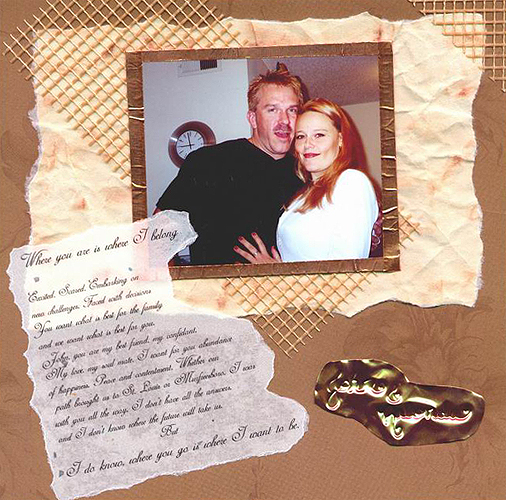 Where you are is where I belong
Excited. Scared. Embarking on
new challenges. Faced with decisions
You want what is best for the family
and we want what is best for you.
John, you are my best friend, my confidant.
My love, my soul mate. I want for you abundance
of happiness. Peace and contentment. Whether our
path brought us to St. Louis or Murfreesboro. I was
with you all the way. I don't have all the answers.
and I don't know where the future will take us.
But
I do know, where you go is where I want to be.